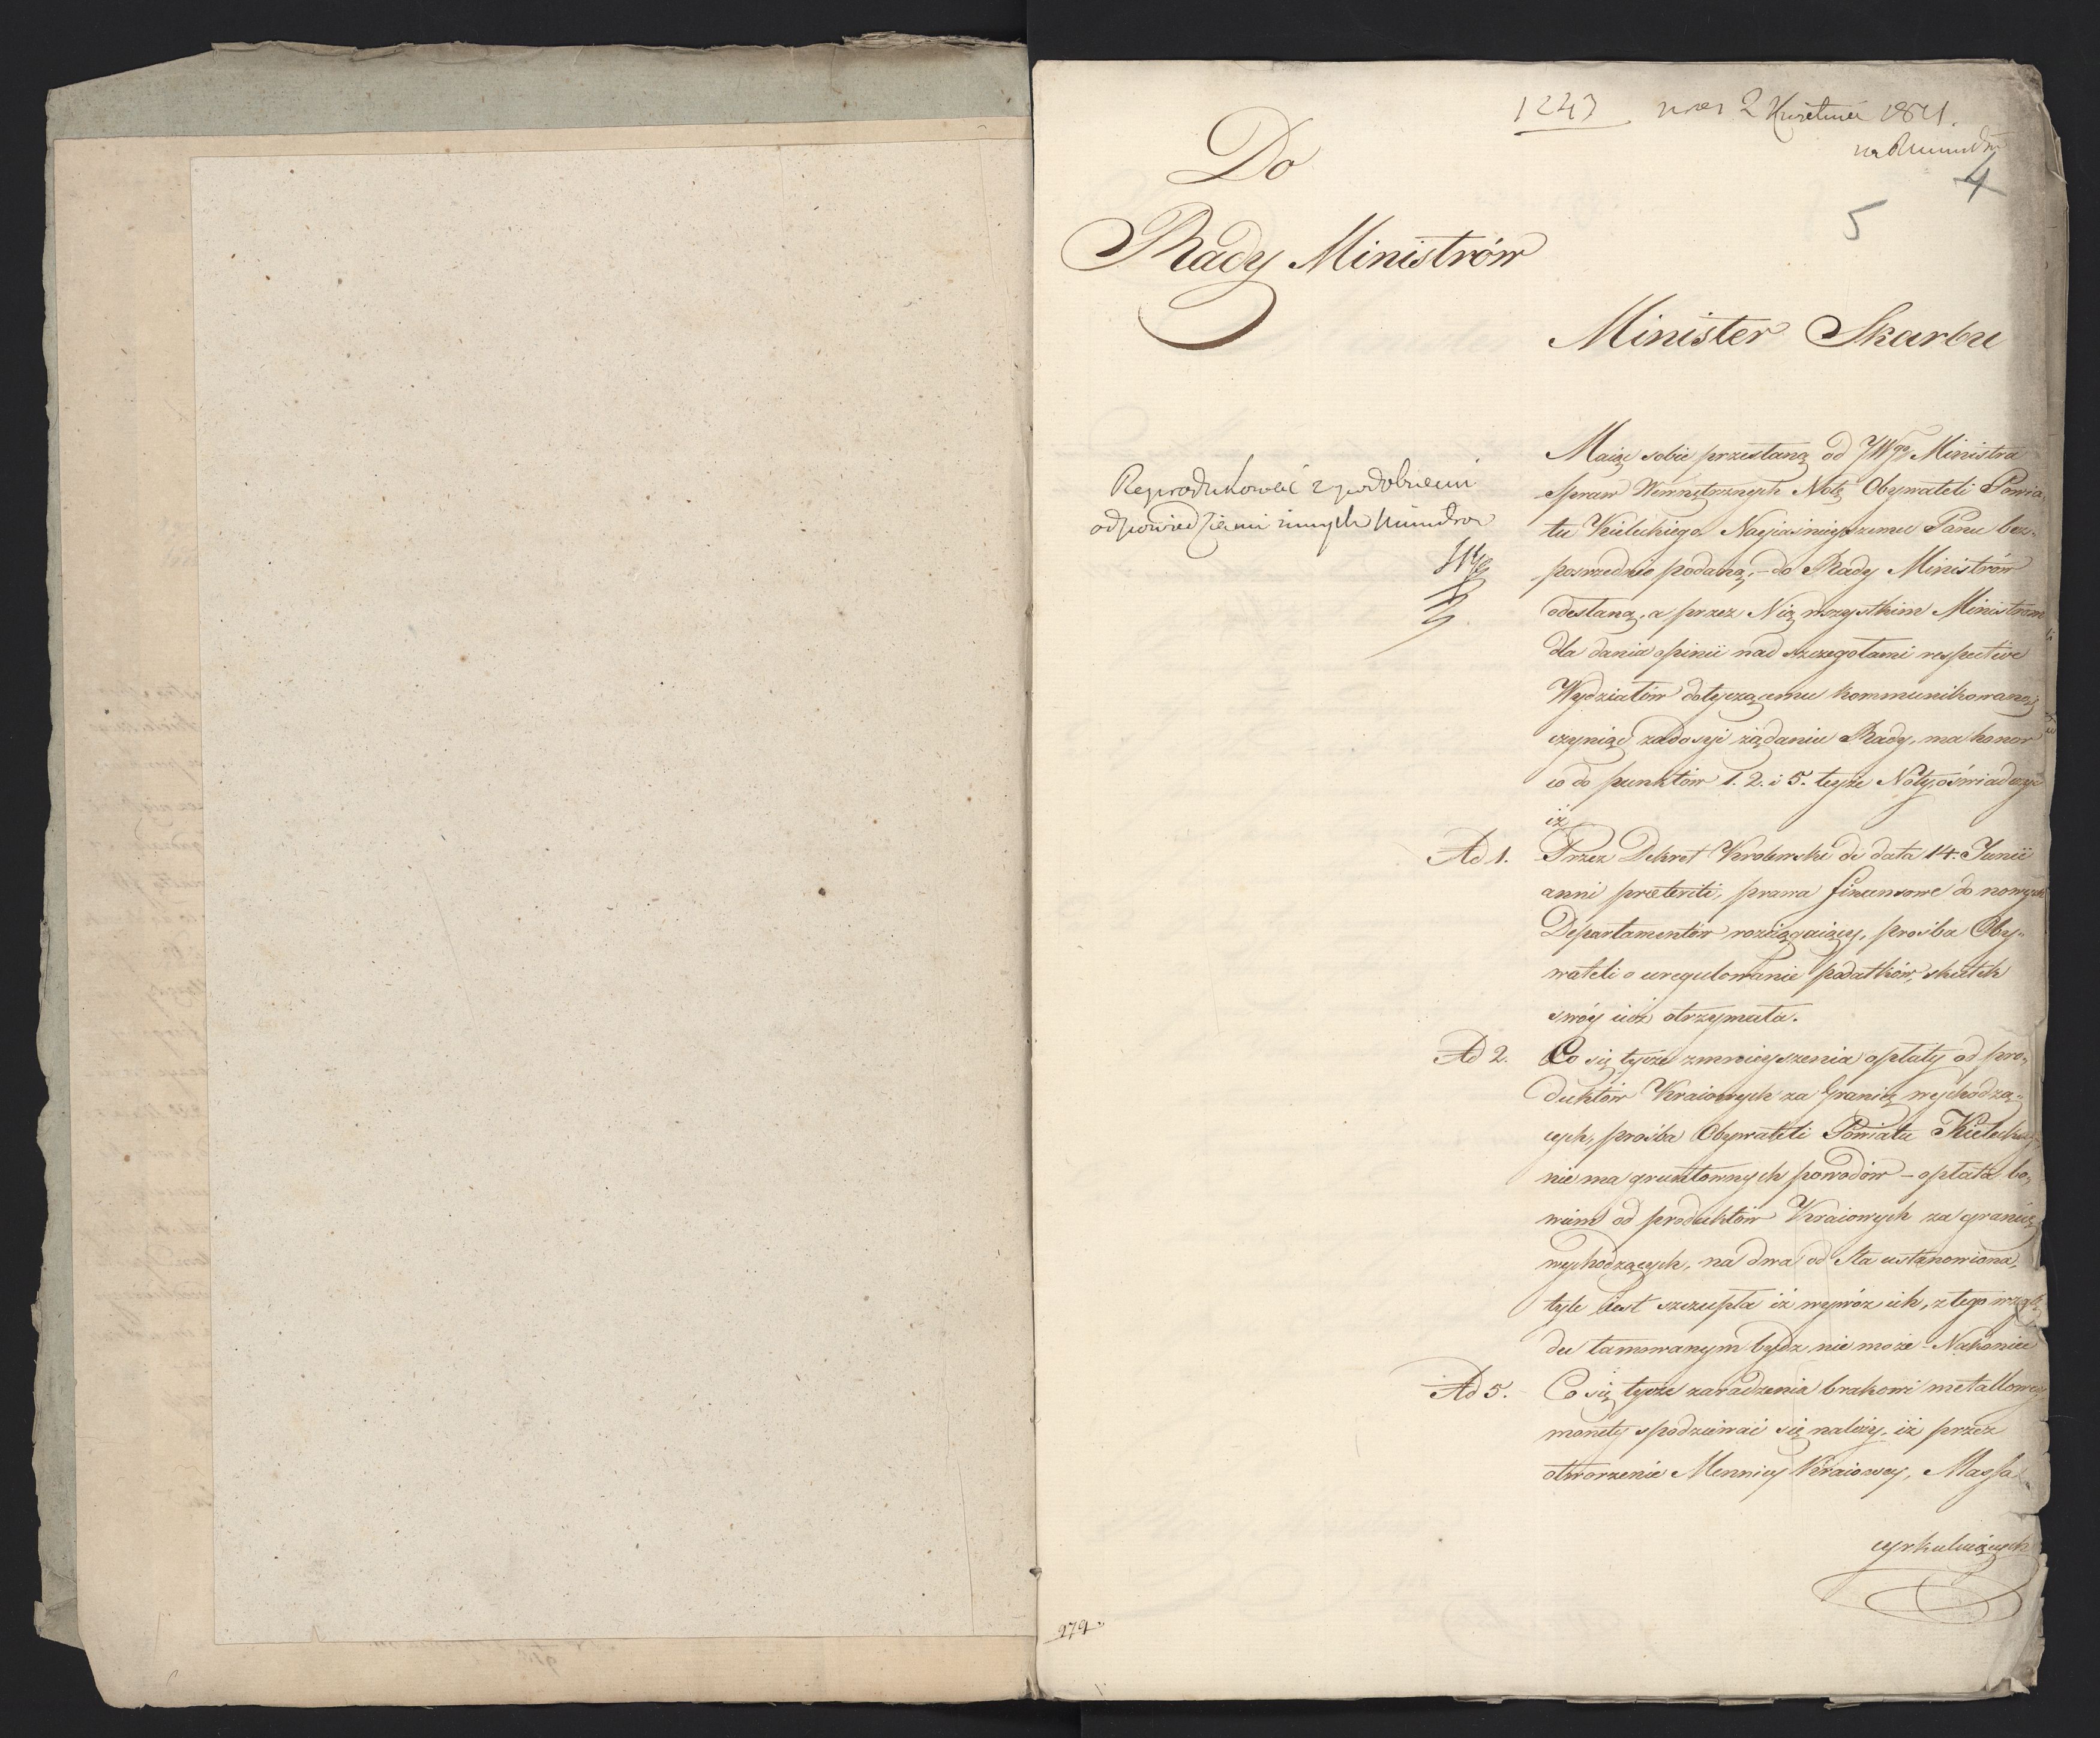 1243 2 Kwietnia 1811.
4
5
Do
Rady Ministrów
Minister Skarbu
Reprodukować z podobnemi
odpowiedziami innych Ministrów
Maiąc sobie przesłaną od JWgo Ministra
Spraw Wewnętrznych Notę Obywateli Powia-
tu Kieleckiego Nayiaśnieyszemu Panu bez-
posrzednio podaną, – do Rady Ministrów
odesłaną, a przez Nią wszystkim Ministrom
dla dania opinii nad szczegołami respective
Wydziałów dotyczącemu kommunikowaną,
czyniąc zadosyć żądaniu Rady, ma honor
co do punktów 1. 2. i 5. teyże Noty, oświadczyć
iż
Ad 1. Przez Dekret Krolewski de data 14. Junii
anni præteriti, prawa finansowe do nowych
Departamentów rozciągaiący, prośba Oby-
wateli o uregulowanie podatków, skutek
swóy iuż otrzymała.
Ad 2. Co się tycze zmnieyszenia opłaty od pro-
duktów Kraiowych za Granicę wychodzą-
cych, prośba Obywateli Powiatu Kieleckiego
nie ma gruntownych powodów – opłata bo-
wiem od produktów Kraiowych za granicę
wychodzących, na dwa od Sta ustanowiona,
tyle iest szczupła iż wywóz ich, z tego wzglę-
du tamowanym bydz nie może – Nakoniec
Ad 5. Co się tycze zaradzenia brakowi metallowey
monety spodziewać się należy, iż przez
otworzenie Mennicy Kraiowey, Massa
cyrkuluiących
279